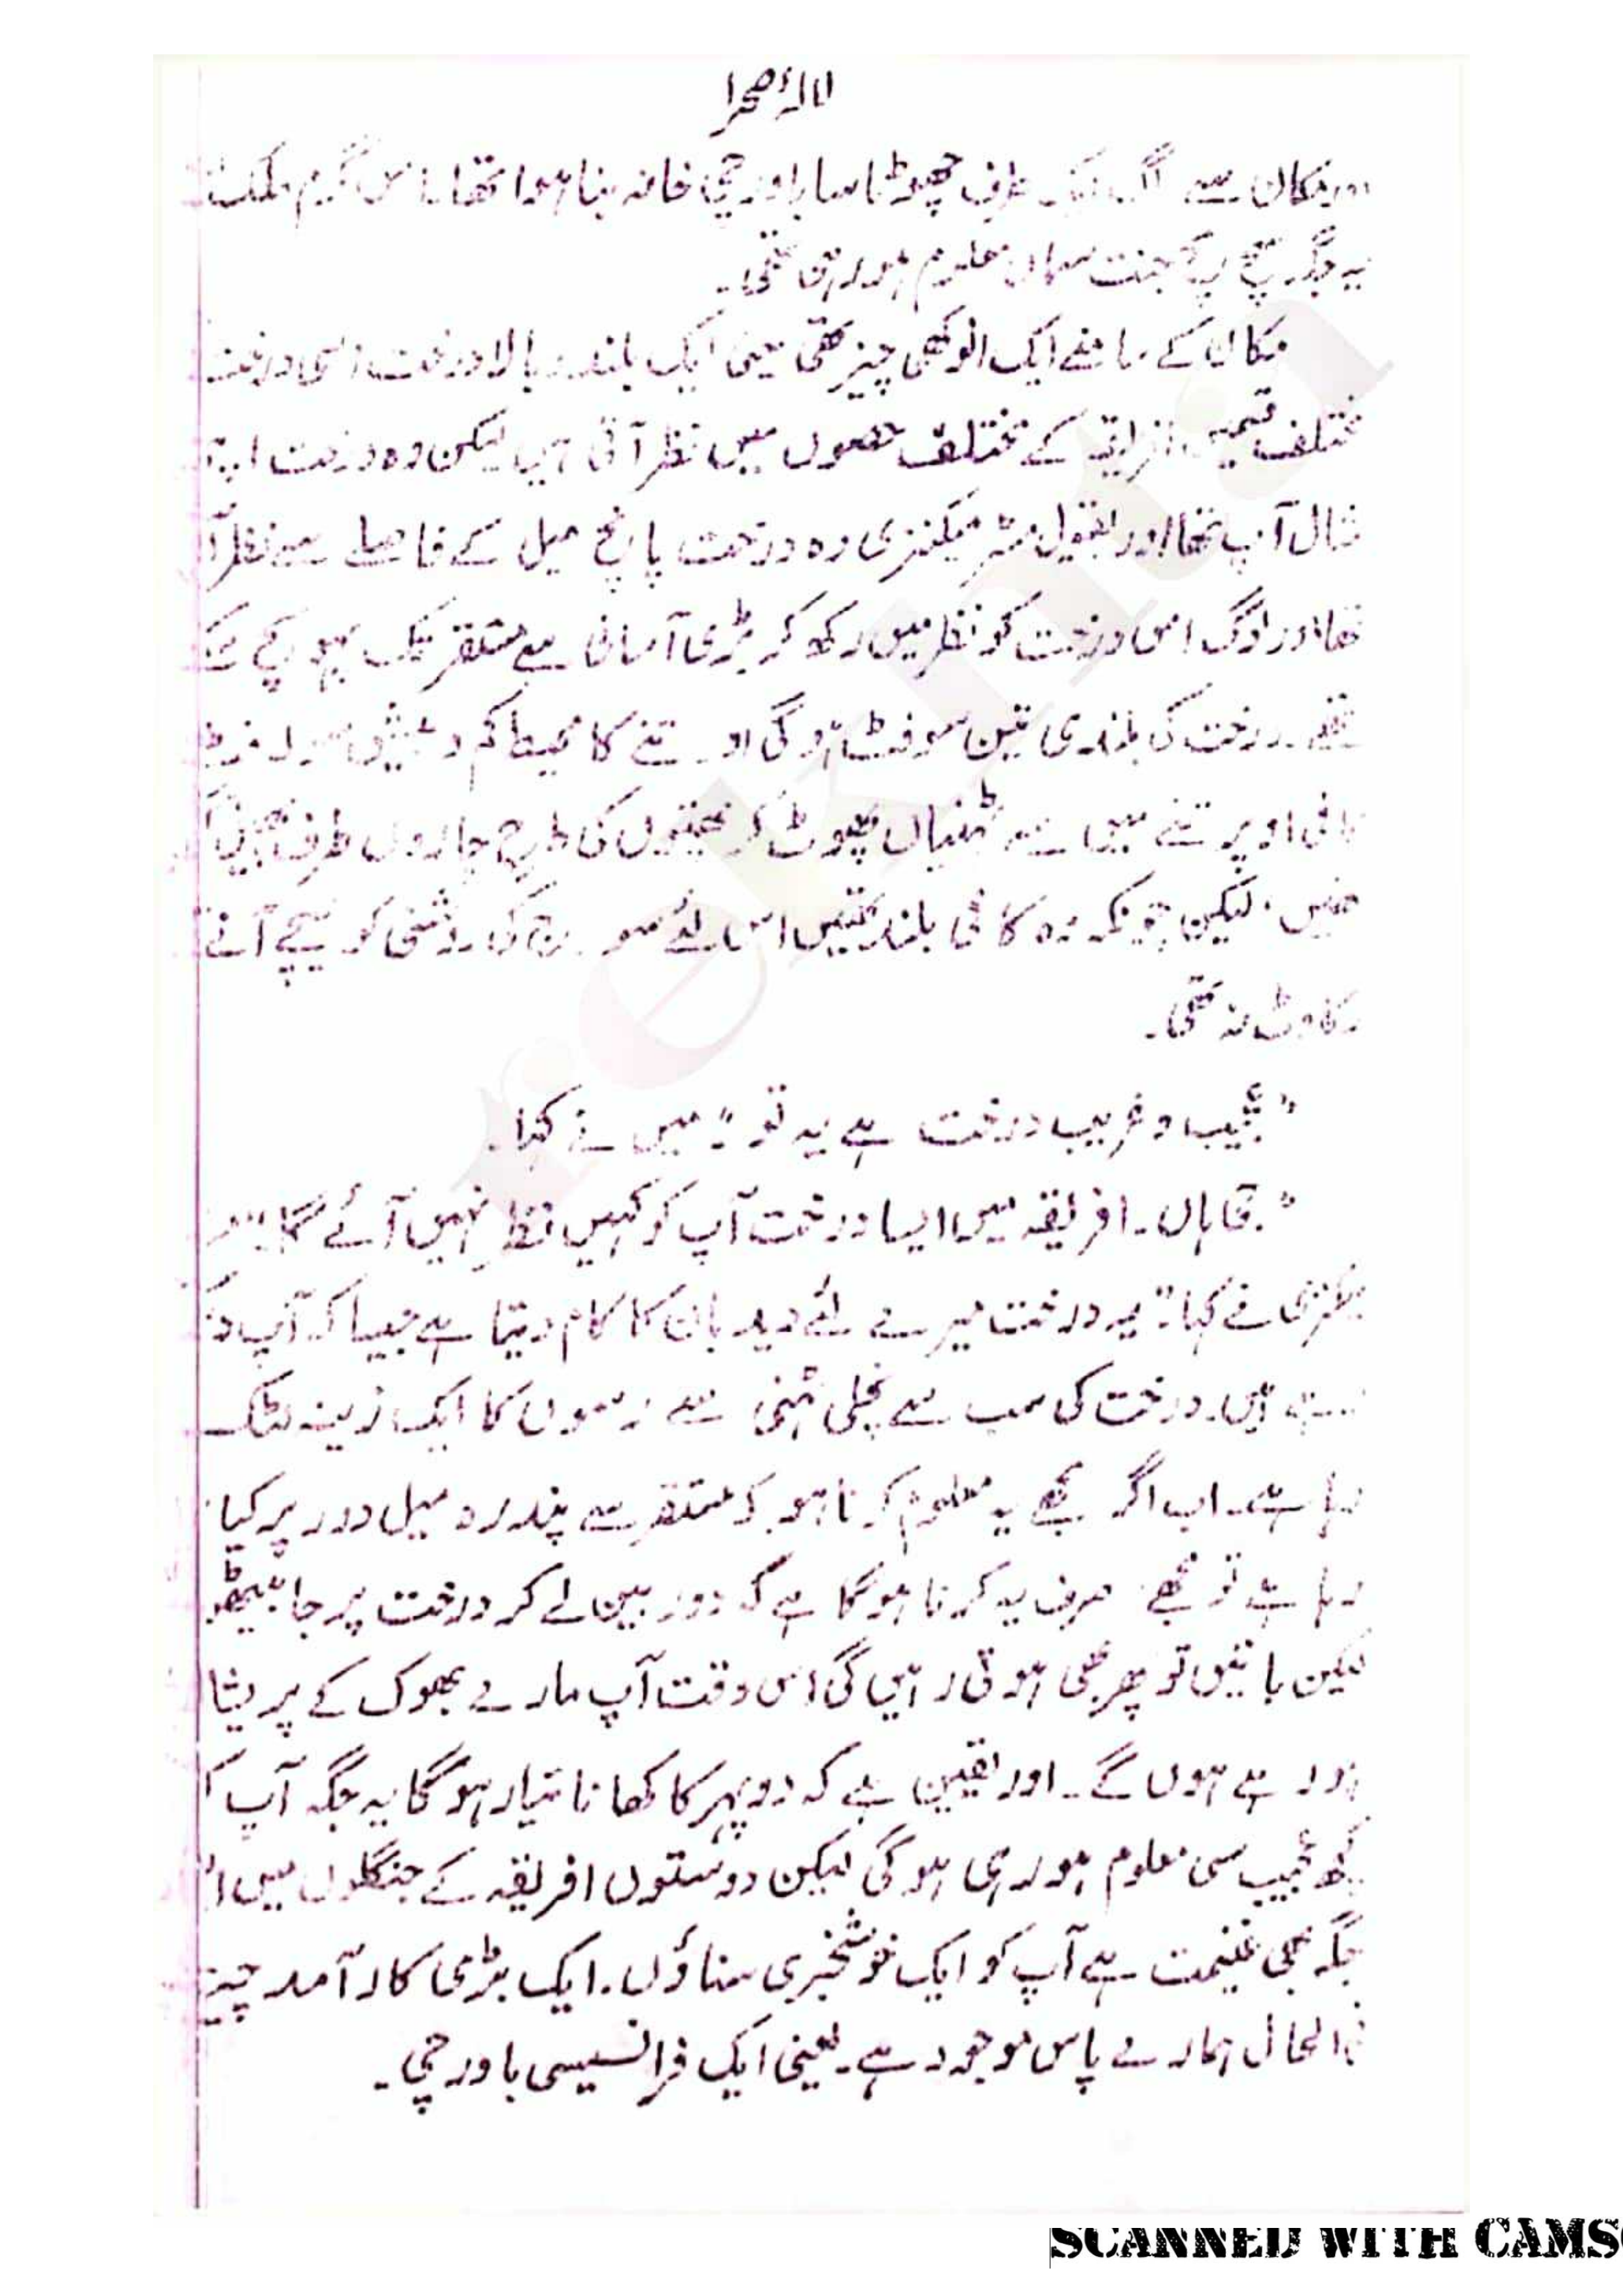 لالۂ صحرا
اور مکان سے الگ ایک طرف چھوٹا سا باورچی خانہ بنا ہوا تھا۔ اس گرم ملک میں
یہ جگہ سچ مچ جنت سماں معلوم ہو رہی تھی۔
مکان کے سامنے ایک انوکھی چیز تھی یعنی ایک بلند و بالا درخت۔ اس درخت
مختلف قسمیں افریقہ کے مختلف حصوں میں نظر آتی ہیں لیکن وہ درخت اپنی
مثال آپ تھا اور بقول مسٹر میکنزی وہ درخت پانچ میل کے فاصلے سے نظر آ
تھا اور لوگ اس درخت کو نظر میں رکھ کر بڑی آسانی سے مستقر تک پہونچ سکتے
تھے۔ درخت کی بلندی تین سو فٹ ہو گی اور تنے کا محیط کم و بیش سولہ فٹ
کافی اوپر تنے میں سے ٹہنیاں پھوٹ کر چھتوں کی طرح چاروں طرف
تھیں۔ لیکن چونکہ وہ کافی بلند تھیں اس لئے سورج کی روشنی کو نیچے آنے
رکاوٹ نہ تھی۔
"عجیب و غریب درخت ہے یہ تو" میں نے کہا۔
"جی ہاں۔ افریقہ میں ایسا درخت آپ کو کہیں نظر نہیں آئے گا۔"
میکنزی نے کہا۔ "یہ درخت میرے لئے دیدبان کا کام دیتا ہے جیسا کہ آپ دیکھ
رہے ہیں۔ درخت کی سب سے نچلی ٹہنی سے رسوں کا ایک زینہ لٹک
رہا ہے۔ اب اگر مجھے یہ معلوم کرنا ہو کہ مستقر سے پندرہ میل دور پر کیا
رہا ہے تو مجھے صرف یہ کرنا ہو گا ہے کہ دوربین لے کر درخت پر جا بیٹھو
لیکن باتیں تو پھر بھی ہوتی رہیں گی اس وقت آپ مارے بھوک کے پریشا
ہو رہے ہوں گے۔ اور یقین ہے کہ دوپہر کا کھانا تیار ہو گا یہ جگہ آپ ک
کچھ عجیب سی معلوم ہو رہی ہو گی لیکن دوستوں افریقہ کے جنگلوں میں ا
جگہ بھی غنیمت ہے آپ کو ایک خوشخبری سناؤں۔ ایک بڑی کارآمد چیز
فی الحال ہمارے پاس موجود ہے۔ یعنی ایک فرانسیسی باورچی۔
rekhta
SCANNED WITH CAMS